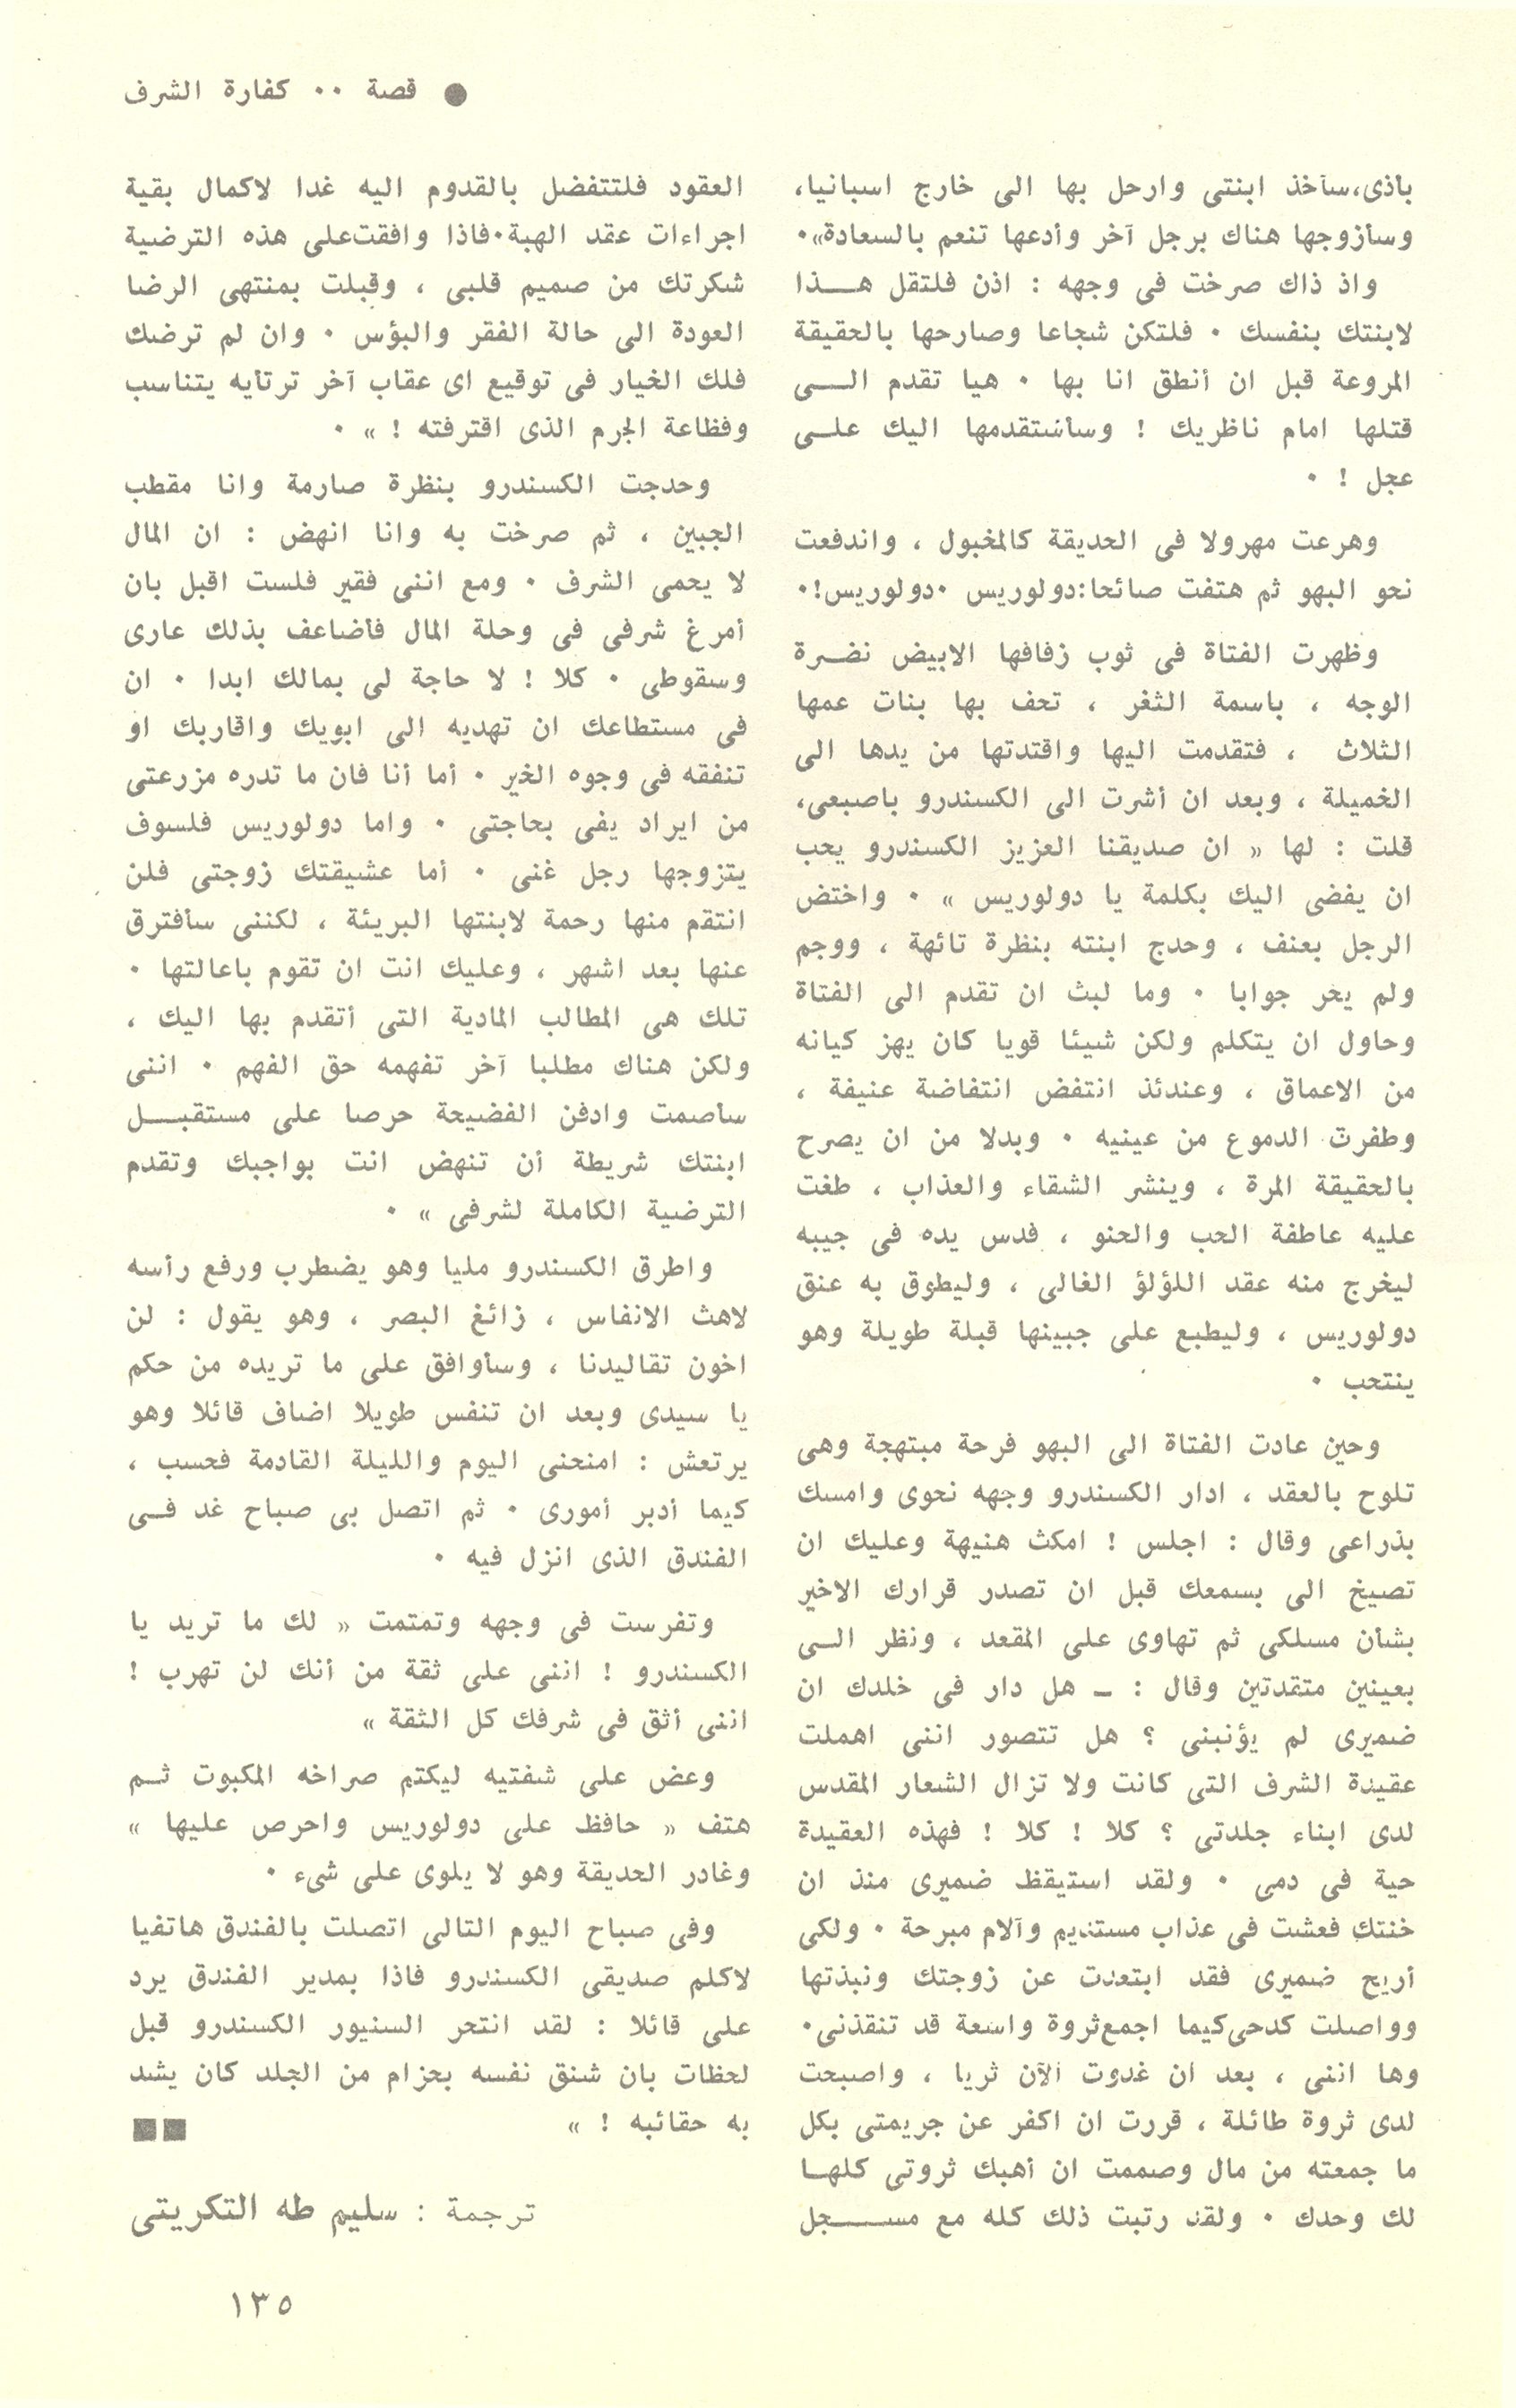 ● قصة ٠٠ كفارة الشرف
بأذى،سآخذ ابنتى وارحل بها الى خارج اسبانيا،
وسأزوجها هناك برجل آخر وأدعها تنعم بالسعادة»٠
واذ ذاك صرخت فى وجهه : اذن فلتقل هـــذا
لابنتك بنفسك ٠ فلتكن شجاعا وصارحها بالحقيقة
المروعة قبل ان أنطق انا بها ٠ هيا تقدم الـــى
قتلها امام ناظريك ! وسأستقدمها اليك علــى
عجل ! ٠
وهرعت مهرولا فى الحديقة كالمخبول ، واندفعت
نحو البهو ثم هتفت صائحا:دولوريس ٠دولوريس!٠
وظهرت الفتاة فى ثوب زفافها الابيض نضــرة
الوجه ، باسمة الثغر ، تحف بها بنات عمها
الثلاث ، فتقدمت اليها واقتدتها من يدها الى
الخميلة ، وبعد ان أشرت الى الكسندرو باصبعى،
قلت : لها « ان صديقنا العزيز الكسندرو يحب
ان يفضى اليك بكلمة يا دولوريس » ٠ واختض
الرجل بعنف ، وحدج ابنته بنظرة تائهة ، ووجم
ولم يحر جوابا ٠ وما لبث ان تقدم الى الفتاة
وحاول ان يتكلم ولكن شيئا قويا كان يهز كيانه
من الاعماق ، وعندئذ انتفض انتفاضة عنيفة ،
وطفرت الدموع من عينيه ٠ وبدلا من ان يصرح
بالحقيقة المرة ، وينشر الشقاء والعذاب ، طغت
عليه عاطفة الحب والحنو ، فدس يده فى جيبه
ليخرج منه عقد اللؤلؤ الغالى ، وليطوق به عنق
دولوريس ، وليطبع على جبينها قبلة طويلة وهو
ينتحب ٠
وحين عادت الفتاة الى البهو فرحة مبتهجة وهى
تلوح بالعقد ، ادار الكسندرو وجهه نحوى وامسك
بذراعى وقال : اجلس ! امكث هنيهة وعليك ان
تصيخ الى بسمعك قبل ان تصدر قرارك الاخير
بشأن مسلكى ثم تهاوى على المقعد ، ونظر الــى
بعينين متقدتين وقال : ــ هل دار فى خلدك ان
ضميرى لم يؤنبنى ؟ هل تتصور اننى اهملت
عقيدة الشرف التى كانت ولا تزال الشعار المقدس
لدى ابناء جلدتى ؟ كلا ! كلا ! فهذه العقيدة
حية فى دمى ٠ ولقد استيقظ ضميرى منذ ان
خنتك فعشت فى عذاب مستديم وآلام مبرحة ٠ ولكى
أريح ضميرى فقد ابتعدت عن زوجتك ونبذتها
وواصلت كدحى كيما اجمع ثروة واسعة قد تنقذنى٠
وها اننى ، بعد ان غدوت الآن ثريا ، واصبحت
لدى ثروة طائلة ، قررت ان اكفر عن جريمتى بكل
ما جمعته من مال وصممت ان أهبك ثروتى كلهــا
لك وحدك ٠ ولقد رتبت ذلك كله مع مســـجل
العقود فلتتفضل بالقدوم اليه غدا لاكمال بقية
اجراءات عقد الهبة٠فاذا وافقت على هذه الترضية
شكرتك من صميم قلبى ، وقبلت بمنتهى الرضا
العودة الى حالة الفقر والبؤس ٠ وان لم ترضك
فلك الخيار فى توقيع اى عقاب آخر ترتأيه يتناسب
وفظاعة الجرم الذى اقترفته ! » ٠
وحدجت الكسندرو بنظرة صارمة وانا مقطب
الجبين ، ثم صرخت به وانا انهض : ان المال
لا يحمى الشرف ٠ ومع اننى فقير فلست اقبل بان
أمرغ شرفى فى وحلة المال فأضاعف بذلك عارى
وسقوطى ٠ كلا ! لا حاجة لى بمالك ابدا ٠ ان
فى مستطاعك ان تهديه الى ابويك واقاربك او
تنفقه فى وجوه الخير ٠ أما أنا فان ما تدره مزرعتى
من ايراد يفى بحاجتى ٠ واما دولوريس فلسوف
يتزوجها رجل غنى ٠ أما عشيقتك زوجتى فلن
انتقم منها رحمة لابنتها البريئة ، لكننى سأفترق
عنها بعد اشهر ، وعليك انت ان تقوم باعالتها ٠
تلك هى المطالب المادية التى أتقدم بها اليك ،
ولكن هناك مطلبا آخر تفهمه حق الفهم ٠ اننى
سأصمت وادفن الفضيحة حرصا على مستقبـــل
ابنتك شريطة أن تنهض انت بواجبك وتقدم
الترضية الكاملة لشرفى » ٠
واطرق الكسندرو مليا وهو يضطرب ورفع رأسه
لاهث الانفاس ، زائغ البصر ، وهو يقول : لن
اخون تقاليدنا ، وسأوافق على ما تريده من حكم
يا سيدى وبعد ان تنفس طويلا اضاف قائلا وهو
يرتعش : امنحنى اليوم والليلة القادمة فحسب ،
كيما أدبر أمورى ٠ ثم اتصل بى صباح غد فــى
الفندق الذى انزل فيه ٠
وتفرست فى وجهه وتمتمت « لك ما تريد يا
الكسندرو ! اننى على ثقة من أنك لن تهرب !
اننى أثق فى شرفك كل الثقة »
وعض على شفتيه ليكتم صراخه المكبوت ثــم
هتف « حافظ على دولوريس واحرص عليها »
وغادر الحديقة وهو لا يلوى على شىء ٠
وفى صباح اليوم التالى اتصلت بالفندق هاتفيا
لاكلم صديقى الكسندرو فاذا بمدير الفندق يرد
على قائلا : لقد انتحر السنيور الكسندرو قبل
لحظات بان شنق نفسه بحزام من الجلد كان يشد
به حقائبه ! » ■■
ترجمة : سليم طه التكريتى
١٣٥